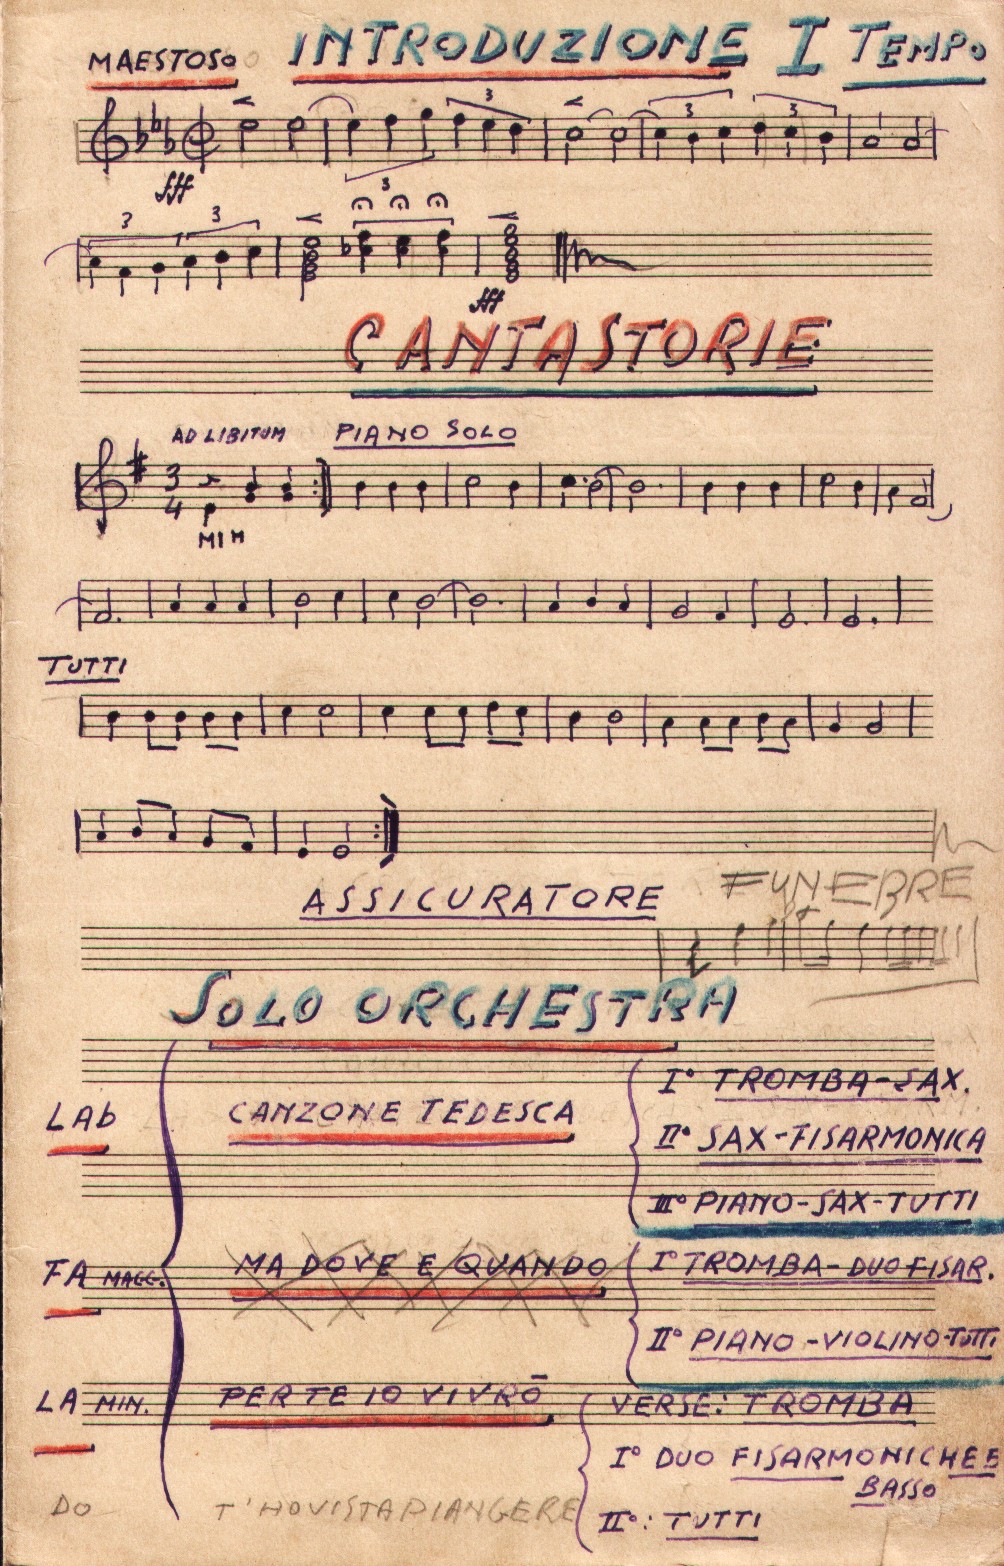 MAESTOSO INTRODUZIONE I TEMPO
3 3 3
fff
3 3 3
fff
CANTASTORIE
AD LIBITUM PIANO SOLO
3
4
MI M
TUTTI
ASSICURATORE FUNEBRE
SOLO ORCHESTRA
I° TROMBA-SAX.
LAb CANZONE TEDESCA
II° SAX-FISARMONICA
III° PIANO-SAX-TUTTI
FA MAGG. MA DOVE E QUANDO I° TROMBA-DUO FISAR.
II° PIANO-VIOLINO-TUTTI
LA MIN. PER TE IO VIVRÒ VERSE: TROMBA
I° DUO FISARMONICHE E
BASSO
DO T'HO VISTA PIANGERE II°: TUTTI